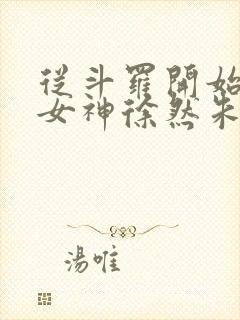 從斗羅開始
女神徐然朱
湯唯